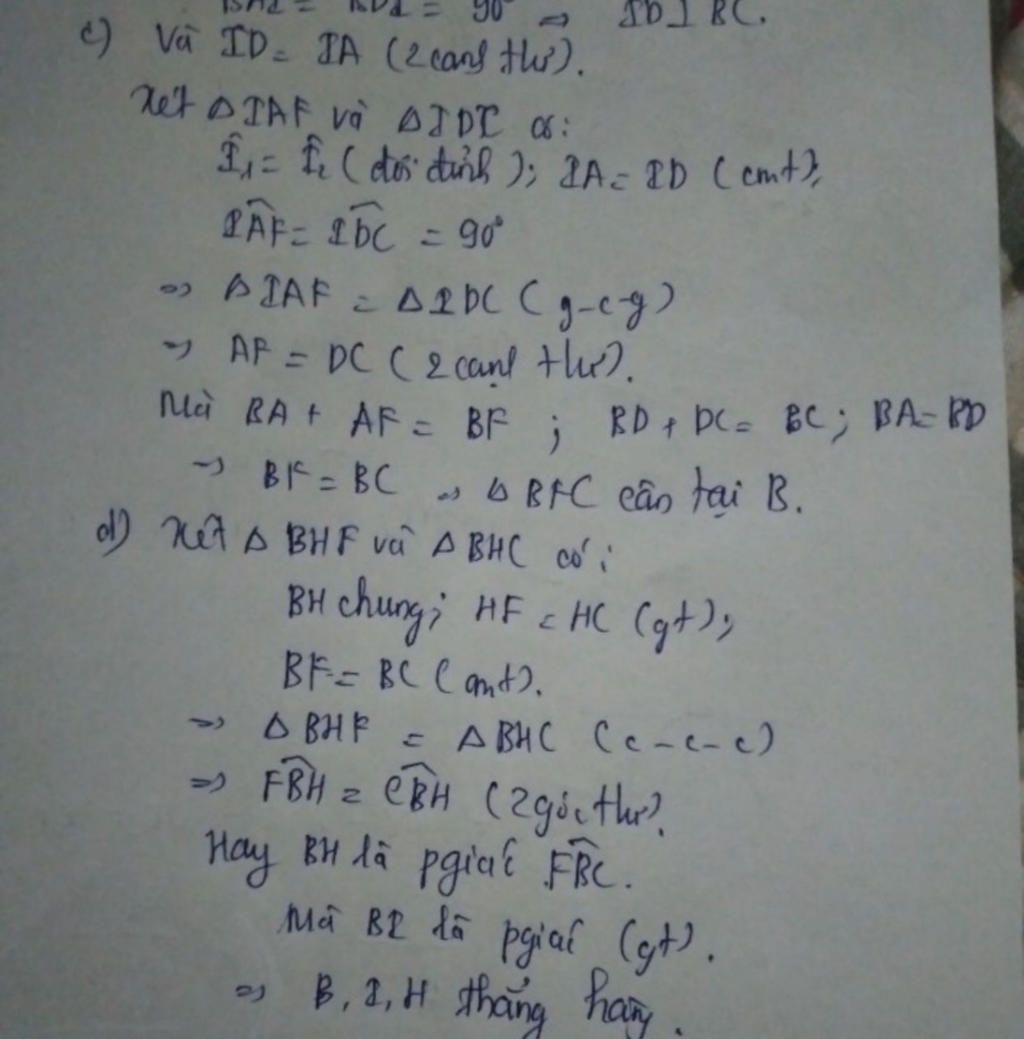 = 90° => ID ⊥ BC.
c) Và ID = IA (2 cạnh tư).
Xét △IAF và △IDC có:
Î₁ = Î₂ (đối đỉnh); IA = ID (cmt);
IÂF = ID̂C = 90°
=> △IAF = △IDC (g-c-g)
=> AF = DC (2 cạnh tư).
Mà BA + AF = BF ; BD + DC = BC; BA = BD
=> BF = BC => △BFC cân tại B.
d) Xét △BHF và △BHC có:
BH chung; HF = HC (gt);
BF = BC (cmt).
=> △BHF = △BHC (c-c-c)
=> FB̂H = CB̂H (2 góc tư).
Hay BH là pgiác FB̂C.
Mà BI là pgiác (gt).
=> B, I, H thẳng hàng.